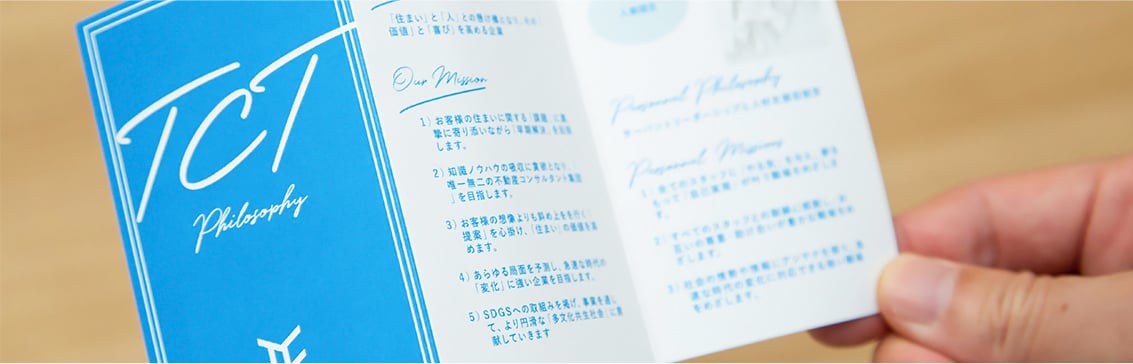 TCT
Philosophy
「住まい」と「人」との懸け橋となり、その
価値」と「喜び」を高める企業
Our Mission
1）お客様の住まいに関する「課題」に真
摯に寄り添いながら「早期解決」を目指
します。
2）知識ノウハウの吸収に貪欲となり、「
唯一無二の不動産コンサルタント集団
」を目指します。
3）お客様の想像よりも斜め上を行く「
提案」を心掛け、「住まい」の価値を高
めます。
4）あらゆる局面を予測し、急速な時代の
「変化」に強い企業を目指します。
5）SDGSへの取組みを掲げ、事業を通し
て、より円滑な「多文化共生社会」に貢
献していきます
Personnel Philosophy
サーバントリーダーシップと人材
Personnel Missions
1）全てのスタッフに「やる気」を与え、
もって「自己実現」が叶う職場をめざしま
す。
2）すべてのスタッフとの
互いの尊重・助け合いが豊かな職場をめ
ざします。
3）社会の情勢や情報にアンテナを張り、急
速な時代の変化に対応できる強い組織
をめざします。